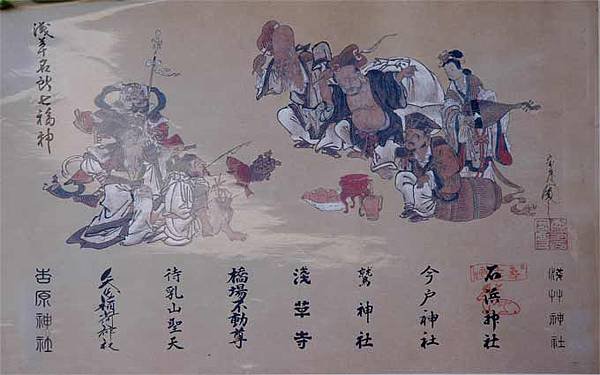 浅草名所七福神
浅艸神社
石浜神社
今戸神社
鷲神社
浅草寺
橋場不動尊
待乳山聖天
矢先稲荷神社
吉原神社